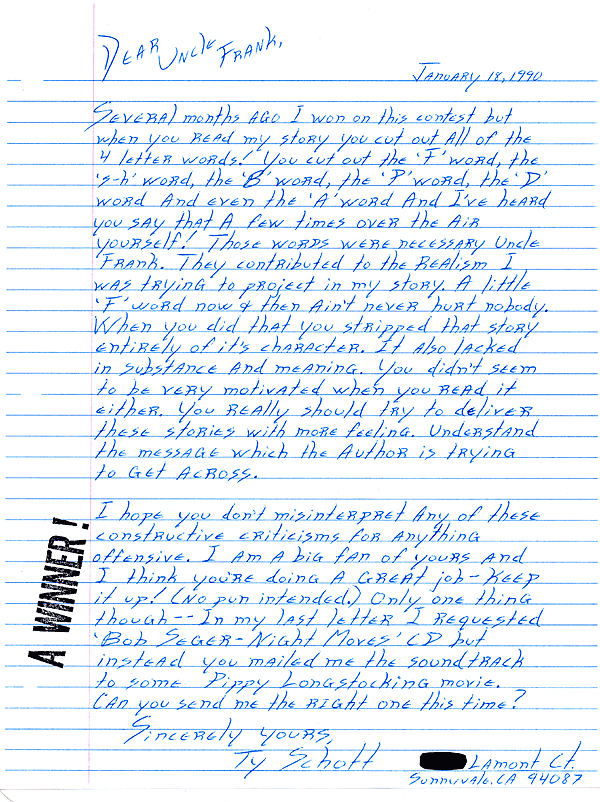 Dear Uncle Frank,
January 18, 1990
Several months ago I won on this contest but
when you read my story you cut out all of the
4 letter words! You cut out the 'F' word, the
's-h' word, the 'B' word, the 'P' word, the 'D'
word and even the 'A' word and I've heard
you say that a few times over the air
yourself! Those words were necessary Uncle
Frank. They contributed to the realism I
was trying to project in my story. A little
'F' word now & then ain't never hurt nobody.
When you did that you stripped that story
entirely of it's character. It also lacked
in substance and meaning. You didn't seem
to be very motivated when you read it
either. You really should try to deliver
these stories with more feeling. Understand
the message which the author is trying
to get across.
I hope you don't misinterpret any of these
constructive criticisms for anything
offensive. I am a big fan of yours and
I think you're doing a great job - keep
it up! (No pun intended.) Only one thing
though -- In my last letter I requested
'Bob Seger - Night Moves' CD but
instead you mailed me the soundtrack
to some Pippy Longstocking movie.
Can you send me the right one this time?
Sincerely yours,
Ty Schott
Lamont Ct.
Sunnyvale, CA 94087
A WINNER!